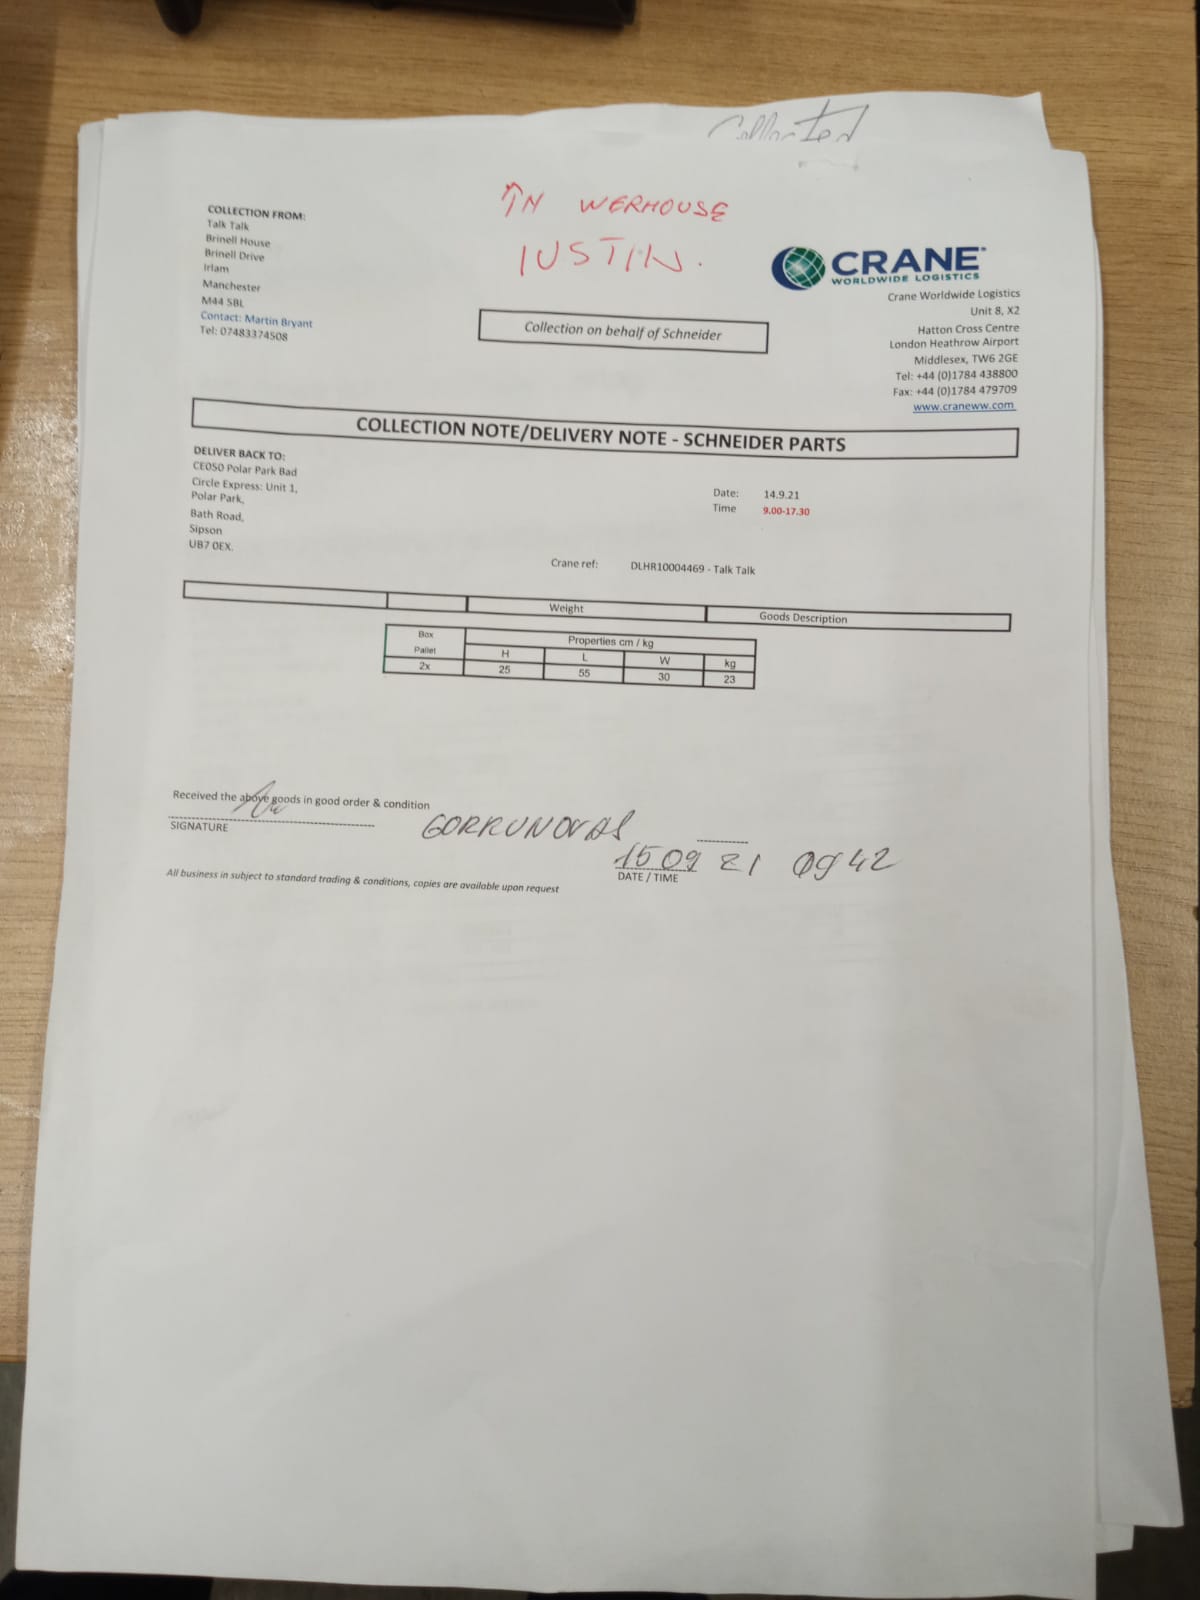 Collected
IN WERHOUSE
IUSTIN.
COLLECTION FROM:
Talk Talk
Brinell House
Brinell Drive
Irlam
Manchester
M44 5BL
Contact: Martin Bryant
Tel: 07483374508
CRANE
WORLDWIDE LOGISTICS
Crane Worldwide Logistics
Unit 8, X2
Hatton Cross Centre
London Heathrow Airport
Middlesex, TW6 2GE
Tel: +44 (0)1784 438800
Fax: +44 (0)1784 479709
www.craneww.com
Collection on behalf of Schneider
COLLECTION NOTE/DELIVERY NOTE - SCHNEIDER PARTS
DELIVER BACK TO:
CE050 Polar Park Bad
Circle Express: Unit 1,
Polar Park,
Bath Road,
Sipson
UB7 0EX.
Date: 14.9.21
Time 9.00-17.30
Crane ref: DLHR10004469 - Talk Talk
Weight Goods Description
Box Pallet Properties cm / kg
H L W kg
2x 25 55 30 23
Received the above goods in good order & condition
SIGNATURE
GORKUNOVAS
15 09 21 0942
DATE / TIME
All business in subject to standard trading & conditions, copies are available upon request